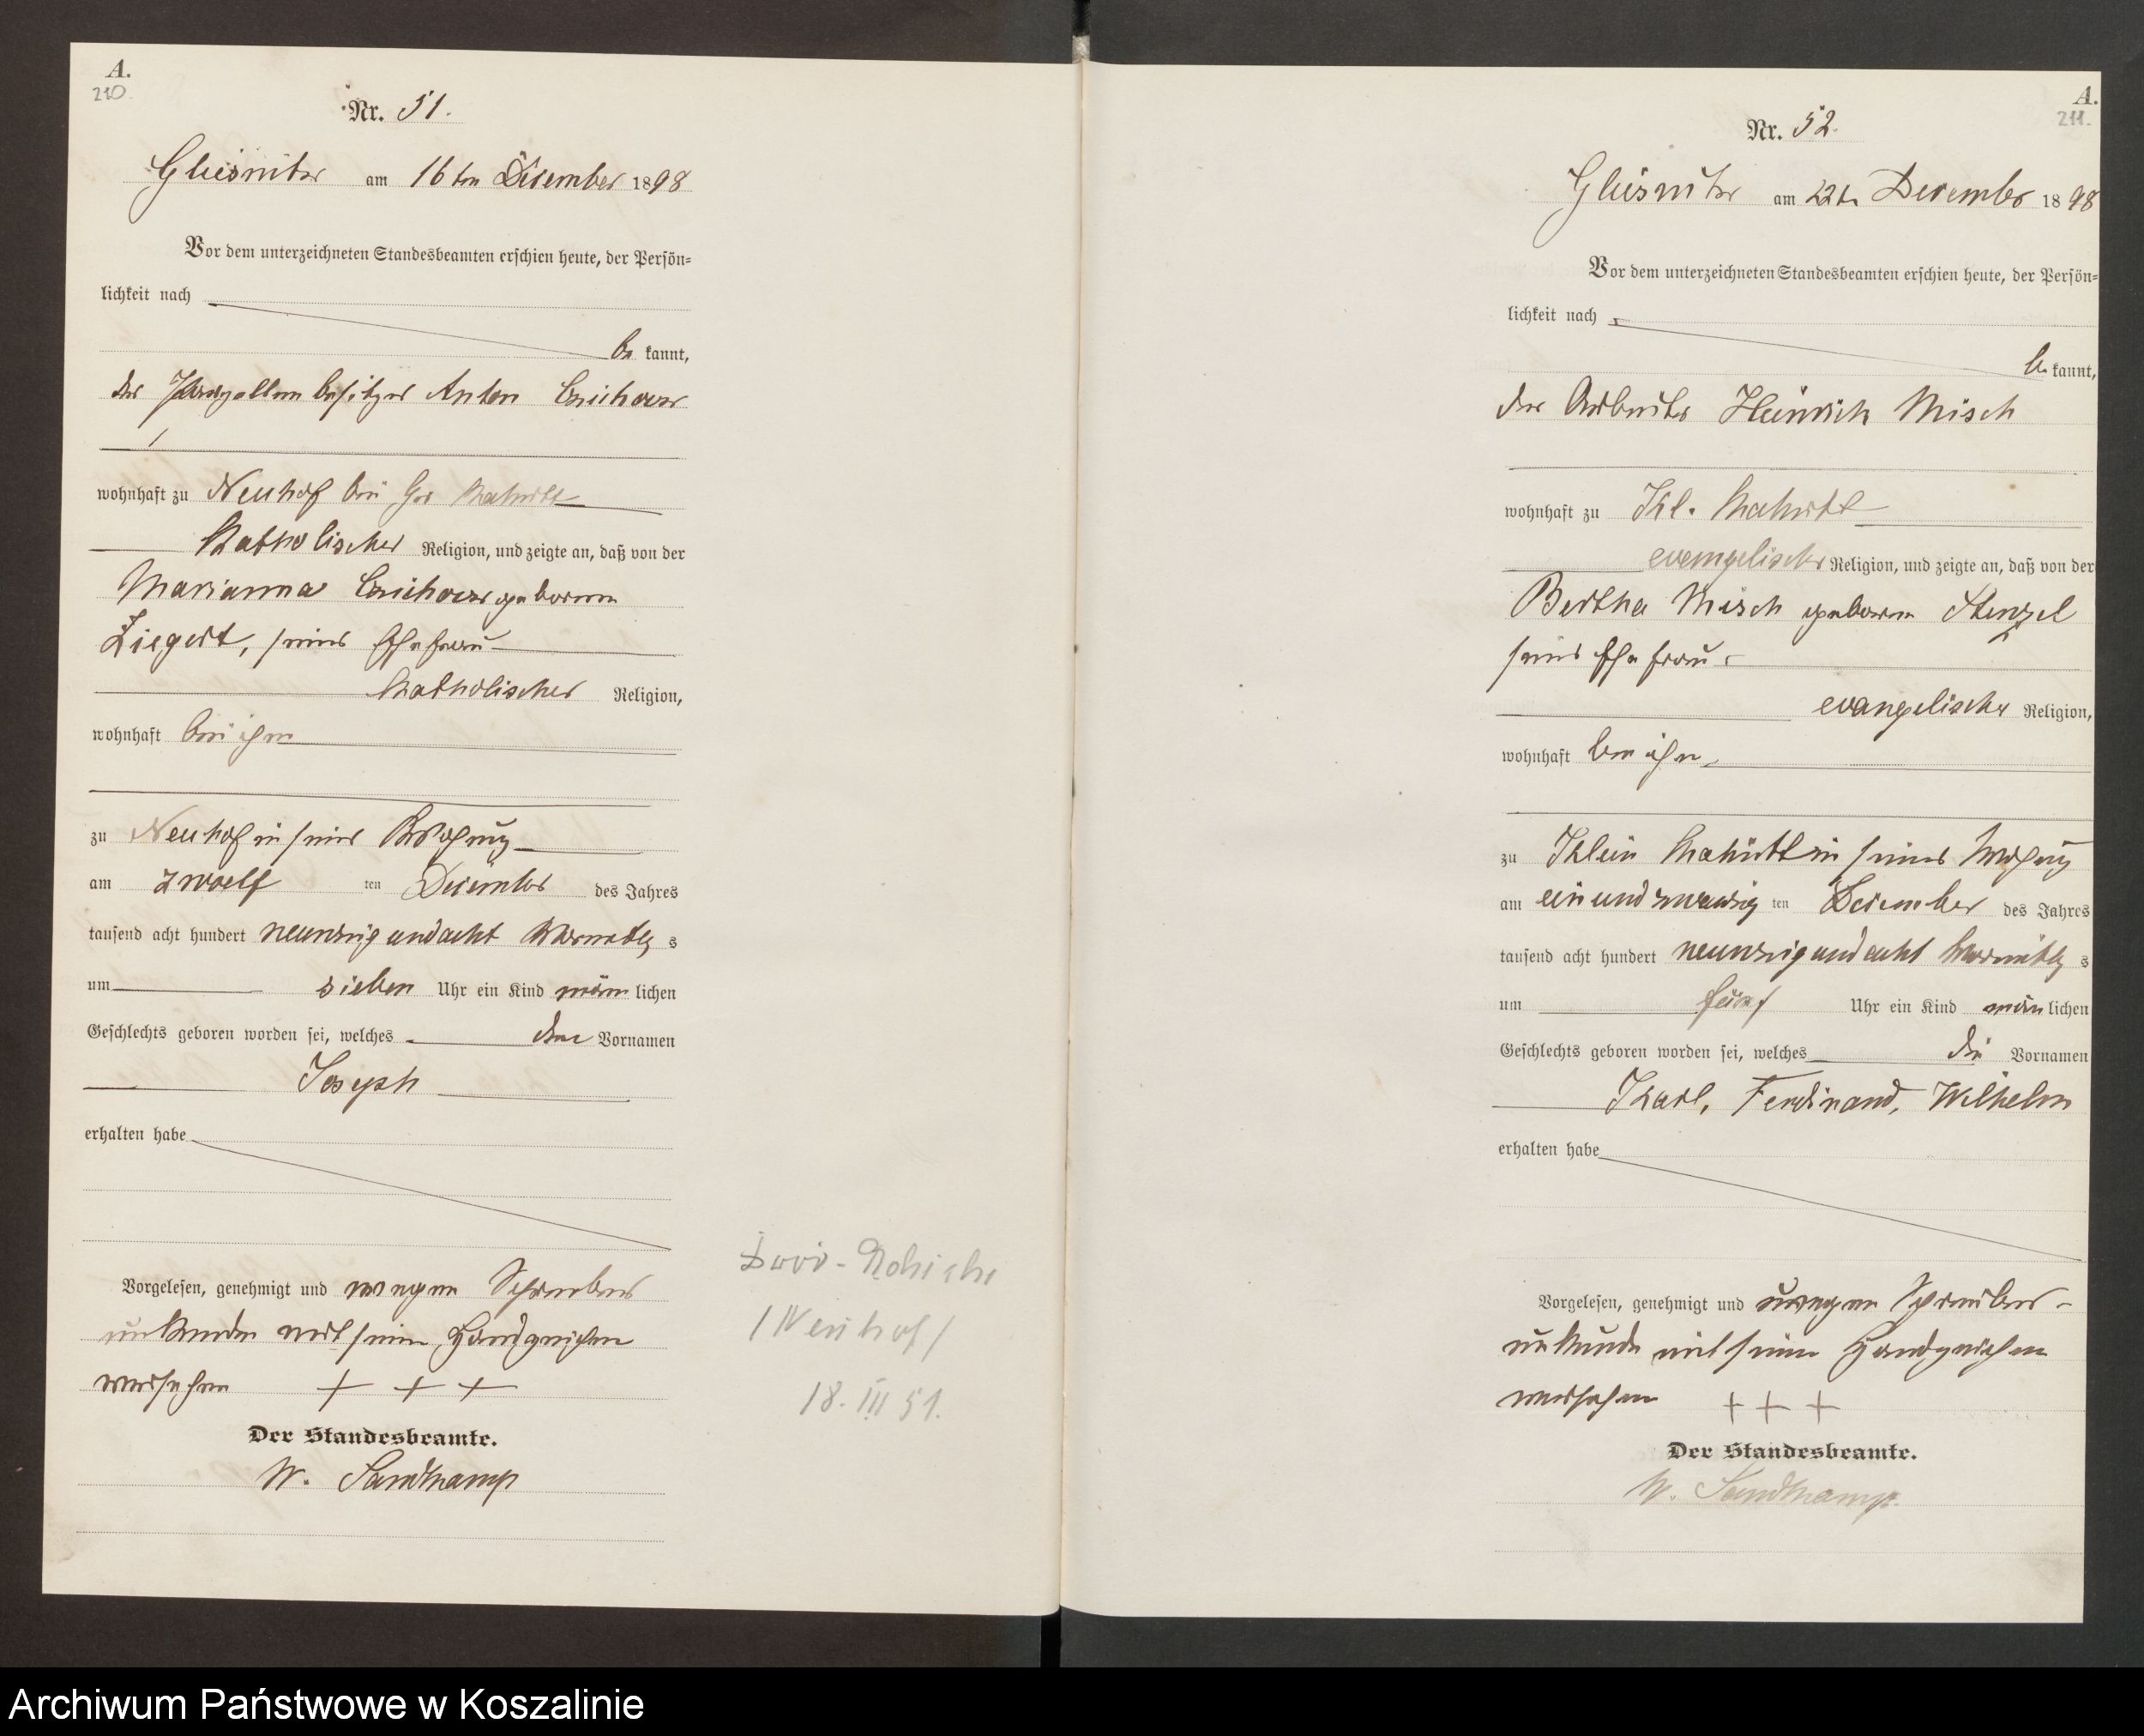 A.
210
Nr. 51.
Gliesnitz am 16ten Dezember 1898
Vor dem unterzeichneten Standesbeamten erschien heute, der Persön-
lichkeit nach
be kannt,
der Parzellenbesitzer Anton
wohnhaft zu Neuhof bei
Katholischer Religion, und zeigte an, daß von der
Marianna geborene
Ziegert, seiner Ehefrau
Katholischer Religion,
wohnhaft bei ihm
zu Neuhof in seiner Wohnung
am zwoelf ten Dezember des Jahres
tausend acht hundert neunzig und acht Vormittag s
um sieben Uhr ein Kind männ lichen
Geschlechts geboren worden sei, welches den Vornamen
Joseph
erhalten habe
Vorgelesen, genehmigt und wegen Schreibens
unkunde mit seinem Handzeichen
versehen + + +
Der Standesbeamte.
W. Sandkamp
/Neuhof/
18. III 51.
A.
211.
Nr. 52.
Gliesnitz am 22ten Dezember 1898
Vor dem unterzeichneten Standesbeamten erschien heute, der Persön-
lichkeit nach
be kannt,
der Arbeiter Heinrich Misch
wohnhaft zu Kl.
evangelischer Religion, und zeigte an, daß von der
Bertha Misch geborene Stenzel
seiner Ehefrau
evangelischer Religion,
wohnhaft bei ihm
zu Klein in seiner Wohnung
am ein und zwanzig ten Dezember des Jahres
tausend acht hundert neunzig und acht Vormittag s
um fünf Uhr ein Kind männ lichen
Geschlechts geboren worden sei, welches die Vornamen
Karl, Ferdinand, Wilhelm
erhalten habe
Vorgelesen, genehmigt und wegen Schreibens-
unkunde mit seinem Handzeichen
versehen + + +
Der Standesbeamte.
W. Sandkamp.
Archiwum Państwowe w Koszalinie